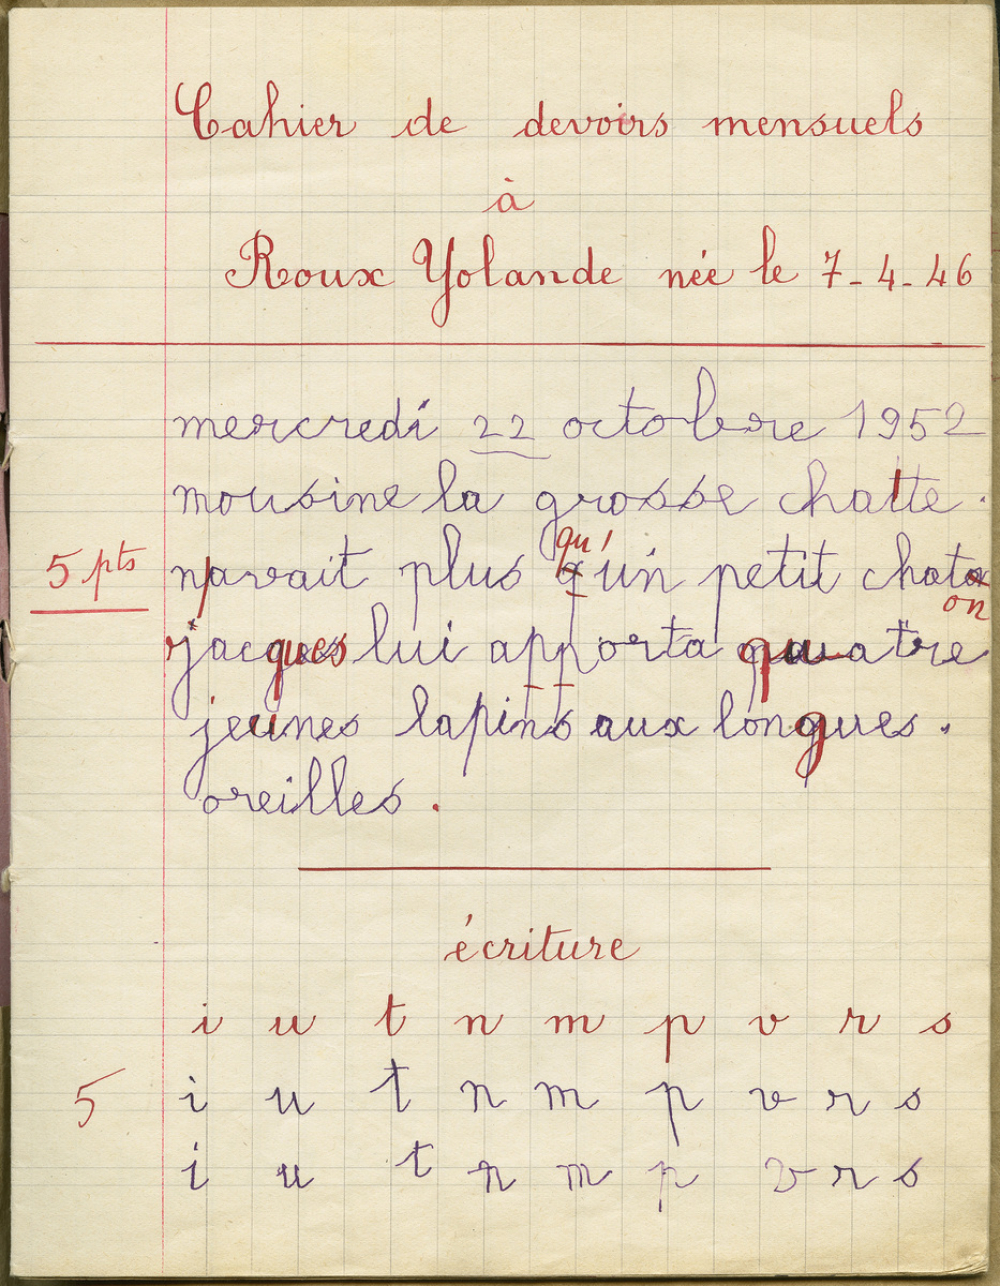 Cahier de devoirs mensuels
à
Roux Yolande née le 7-4-46
mercredi 22 octobre 1952
mousine la grosse chatte.
qu'
5 pts n'avait plus q'un petit chata
on
jacques lui apporta quatre
jeunes lapins aux longues.
oreilles.
écriture
i u t n m p v r s
5 i u t n m p v r s
i u t n m p v r s